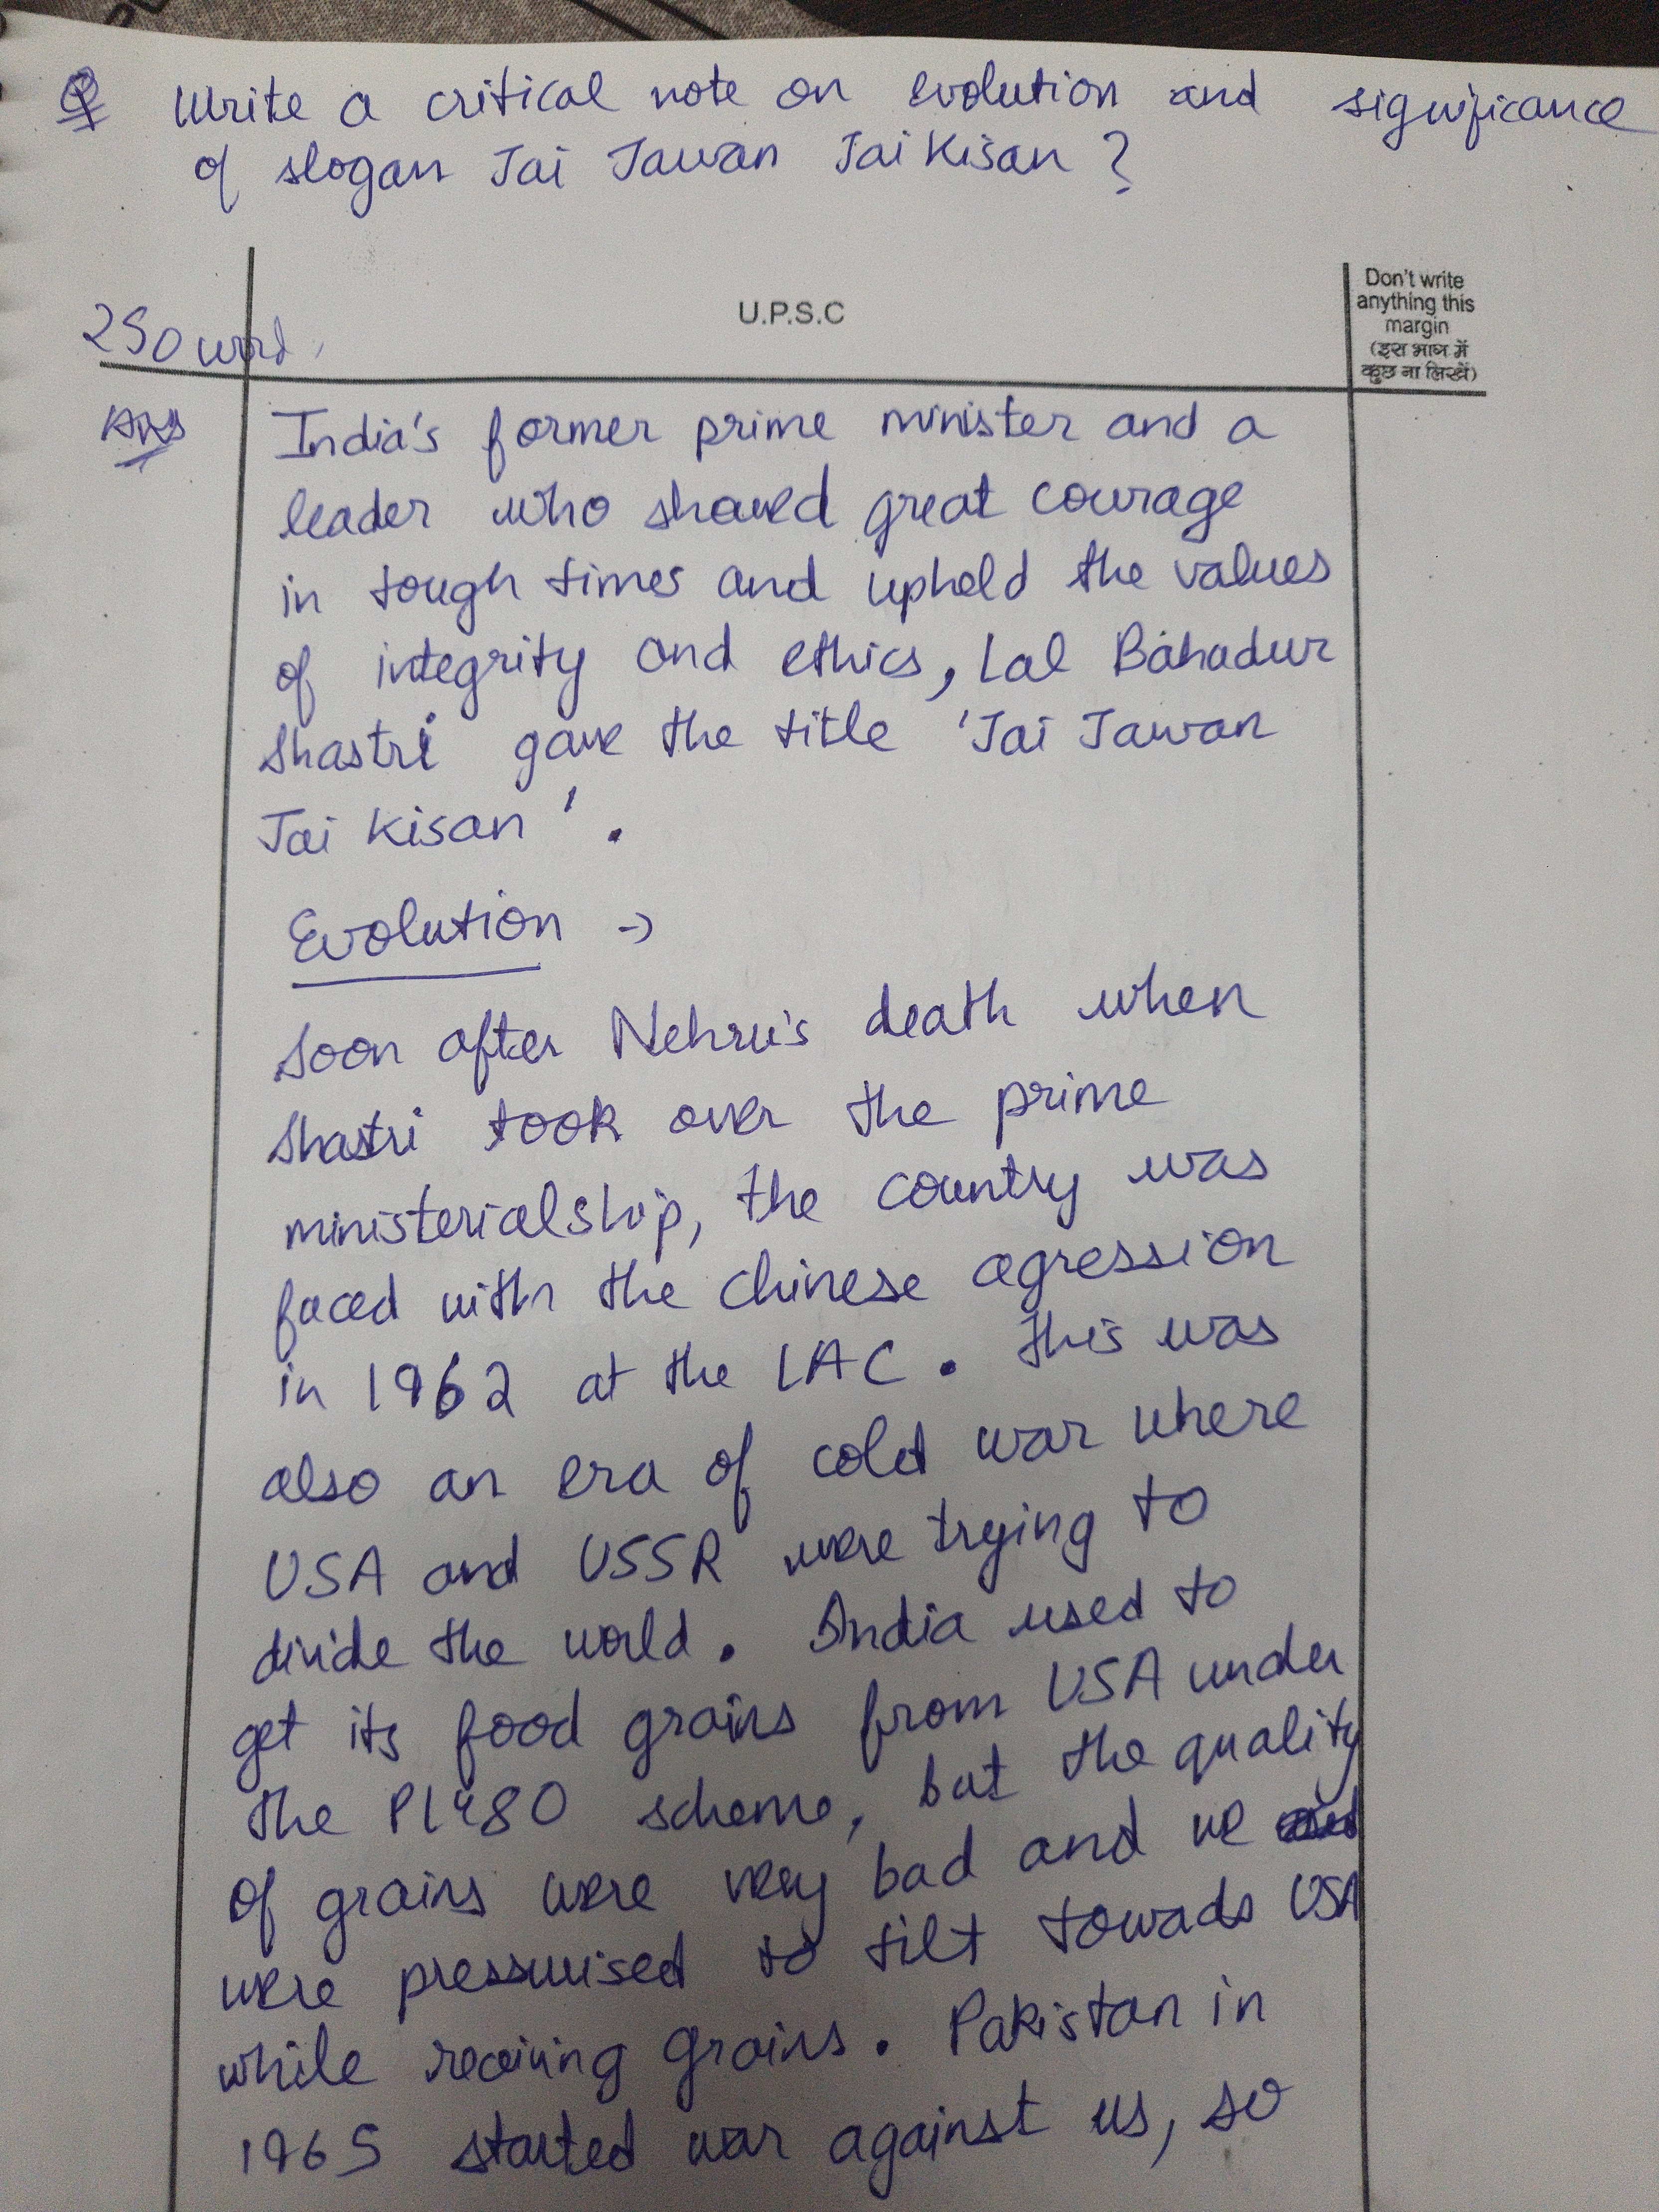 Q Write a critical note on evolution and significance
of slogan Jai Jawan Jai Kisan ?
U.P.S.C
Don't write
anything this
margin
(इस भाग में
कुछ ना लिखें)
250 word.
Ans
India's former prime minister and a
leader who showed great courage
in tough times and upheld the values
of integrity and ethics, Lal Bahadur
Shastri gave the title 'Jai Jawan
Jai Kisan'.
Evolution ->
Soon after Nehru's death when
Shastri took over the prime
ministerialship, the country was
faced with the chinese agression
in 1962 at the LAC. This was
also an era of cold war where
USA and USSR were trying to
divide the world. India used to
get its food grains from USA under
the PL480 scheme, but the quality
of grains were very bad and we
were pressurised to tilt towads USA
while receiving grains. Pakistan in
1965 started war against us, so